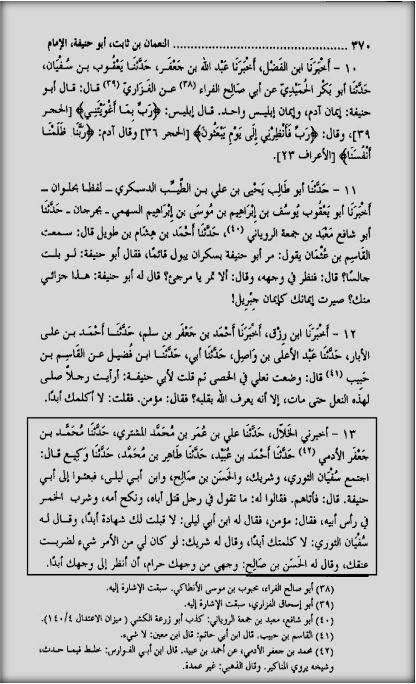 ٣٧٠ ........................ النعمان بن ثابت، أبو حنيفة، الإمام
١٠ - أَخْبَرَنَا ابن الفَضْل، أَخْبَرَنَا عَبْد الله بن جَعْفَر، حَدَّثَنَا يَعْقُوب بن سُفْيَان،
حَدَّثَنَا أَبُو بَكْر الحُمَيْدِيّ عن أبي صَالِح الفراء (٣٨) عـن الفَزَارِيّ (٣٩) قال: قال أبو
حنيفة: إيمان آدم، وإيمان إبليس واحـد. قـال إبليس: ﴿رَبِّ بِمَا أَغْوَيْتَنِي﴾ [الحجر
٣٩]، وقال: ﴿رَبِّ فَأَنْظِرْنِي إِلَى يَوْمِ يُبْعَثُونَ﴾ [الحجر ٣٦] وقال آدم: ﴿رَبَّنَا ظَلَمْنَا
أَنْفُسَنَا﴾ [الأعراف ٢٣].
١١ - حَدَّثَنَا أَبُو طَالِب يَحْيَى بن عَلِي بـن الطَّيِّـب الدسكري - لفظا بحلوان -
أَخْبَرَنَا أَبُو يَعْقُوب يُوسُف بن إِبْرَاهِيم بن مُوسَى بن إِبْرَاهِيم السهمي - بجرجان - حَدَّثَنَا
أَبُو شافع مَعْبَد بن جمعة الروياني (٤٠)، حَدَّثَنَا أَحْمَد بن هِشَام بن طويل قال: سـمعت
القَاسِم بن عُثْمَان يقول: مر أبو حنيفة بسكران يبول قائمًـا، فقال أبو حنيفة: لو بلت
جالسًا؟ قال: فنظر في وجهه، وقال: ألا تمر يا مرجئ؟ قال له أبو حنيفة: هـذا جزائي
منك؟ صيرت إيمانك كإيمان جِبْرِيل!
١٢ - أَخْبَرَنَا ابن رِزْق، أَخْبَرَنَا أَحْمَد بن جَعْفَر بن سلم، حَدَّثَنَـا أَحْمَـد بن علي
الأبار، حَدَّثَنَا عَبْد الأعلى بن وَاصِل، حَدَّثَنَا أبي، حَدَّثَنَـا ابن فُضيل عـن القَاسِـم بن
حَبِيب (٤١) قال: وضعت نعلي في الحصى ثم قلت لأبي حنيفـة: أرأيت رجلاً صلى
لهذه النعل حتى مات، إلا أنه يعرف الله بقلبه؟ فقال: مؤمن. فقلت: لا أكلمك أبدًا.
١٣ - أخبرني الخَلّال، حَدَّثَنَا علي بن عُمَر بن مُحَمَّد المشتري، حَدَّثَنَـا مُحَمَّـد بن
جَعْفَر الأدمي (٤٢) حَدَّثَنَا أَحْمَد بن عُبَيْد، حَدَّثَنَا طَاهِر بن مُحَمَّد، حَدَّثَنَـا وَكِيـع قال:
اجتمع سُفْيَان الثوري، وشريك، والحَسَن بن صَالِح، وابن أبي ليلى، فبعثـوا إلى أبي
حنيفة. قال: فأتاهم. فقالوا له: ما تقول في رجل قتل أباه، ونكح أمه، و شرب الخمر
في رأس أبيه، فقال: مؤمن، فقال له ابن أبي ليلى: لا قبلت لك شهادة أبدًا، وقـال لـه
سُفْيَان الثوري: لا كلمتك أبدًا، وقال له شريك: لو كان لي من الأمر شيء لضربـت
عنقك، وقال له الحَسَن بن صَالِح: وجهي من وجهك حرام، أن أنظر إلى وجهك أبدًا.
(٣٨) أبو صالح الفراء، محبوب بن موسى الأنطاكي. سبقت الإشارة إليه.
(٣٩) أبو إسحاق الفزاري، سبقت الإشارة إليه.
(٤٠) أبو شافع، معبد بن جمعة الروياني: كذب أبو زرعة الكشي ( ميزان الاعتدال ١٤٠/٤).
(٤١) القاسم بن حبيب. قال ابن أبي حاتم: قال ابن معين: لا شيء.
(٤٢) محمد بن جعفر الأدمي، عن أحمد بن عبيد. قال ابن أبي الفوارس: خلط فيما حدث،
وشيخه يروي المناكير. وقال الذهبي: غير عمدة.